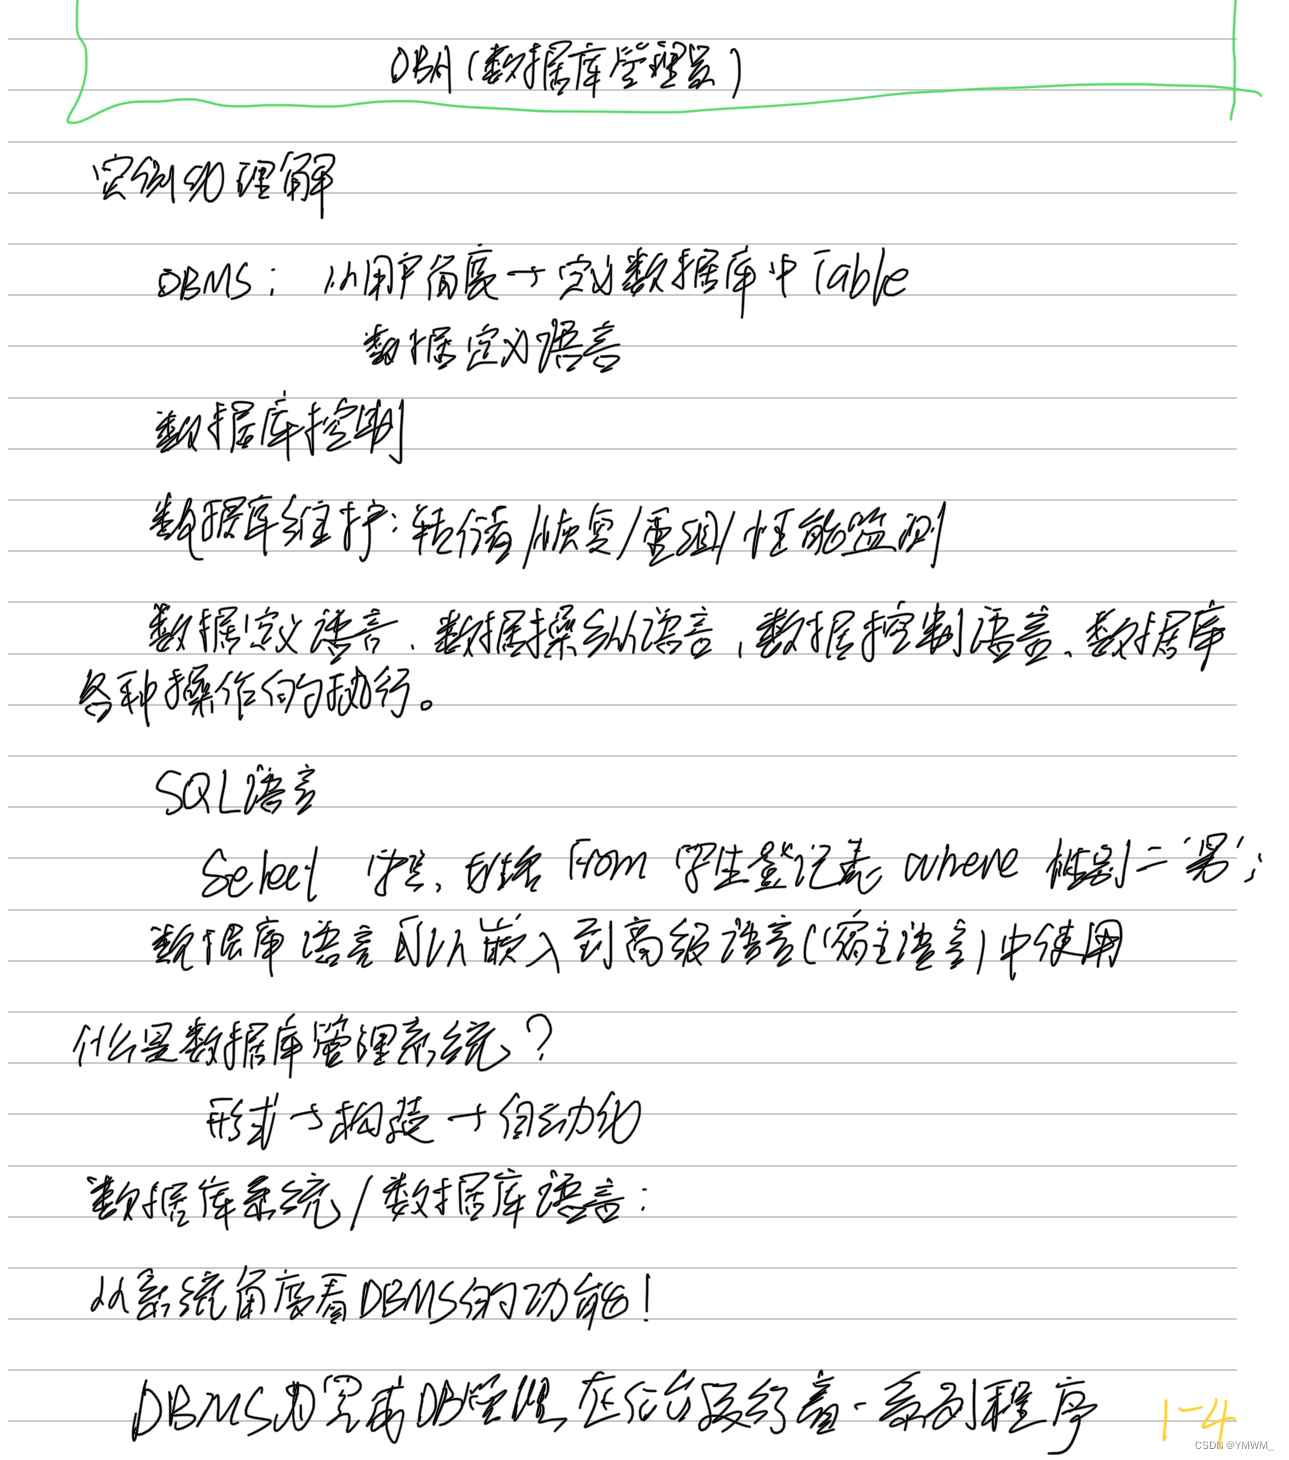 DBA(数据库管理员)
实例的理解
DBMS: 从用户角度→定义数据库中Table
数据定义语言
数据库控制
数据库维护:转储/恢复/重组/性能监测
数据定义语言、数据操纵语言,数据控制语言、数据库
各种操作的执行。
SQL语言
Select 学号,姓名 From 学生登记表 where 性别='男';
数据库语言可以嵌入到高级语言(宿主语言)中使用
什么是数据库管理系统?
形式→构造→自动化
数据库系统/数据库语言:
从系统角度看DBMS的功能!
DBMS为完成DB管理,在后台运行着一系列程序
1-4
CSDN @YMWM_